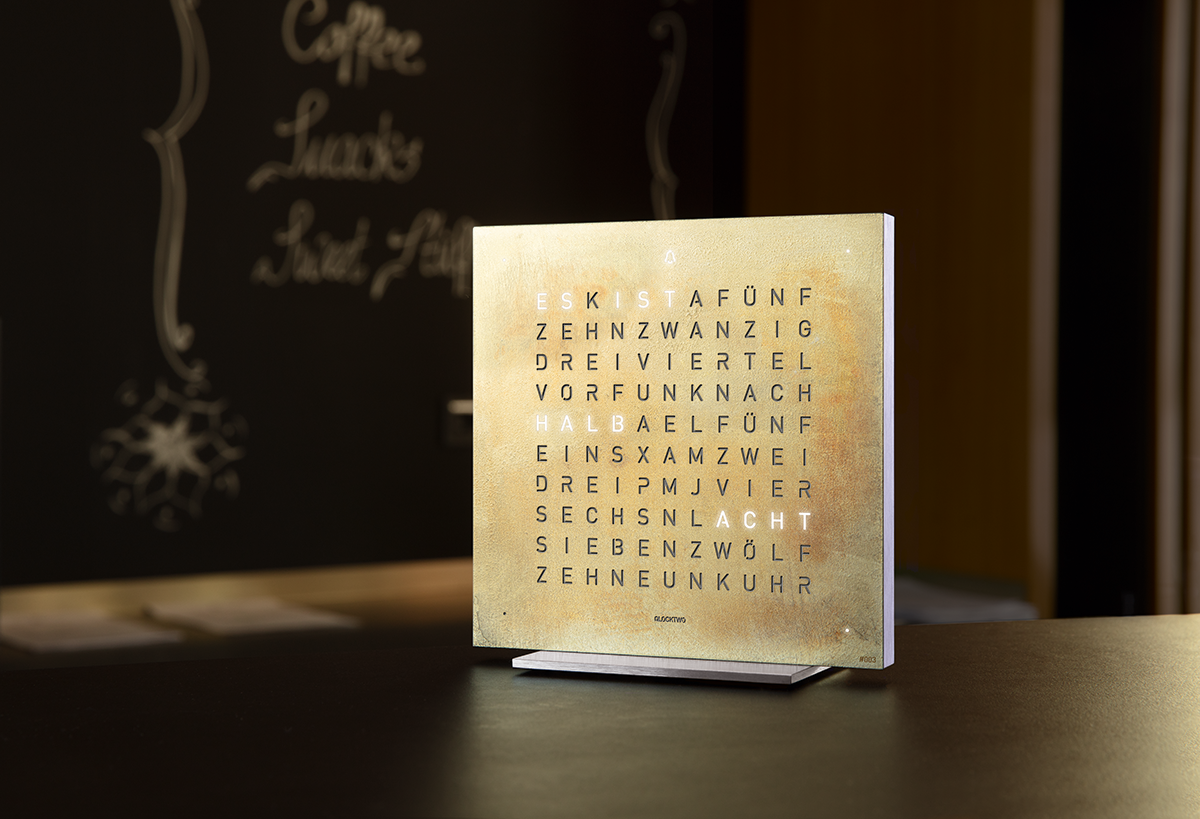 Coffee
Snacks
Sweet
ESKISTAFÜNF
ZEHNZWANZIG
DREIVIERTEL
VORFUNKNACH
HALBAELFÜNF
EINSXAMZWEI
DREIPMJVIER
SECHSNLACHT
SIEBENZWÖLF
ZEHNEUNKUHR
QLOCKTWO
#083